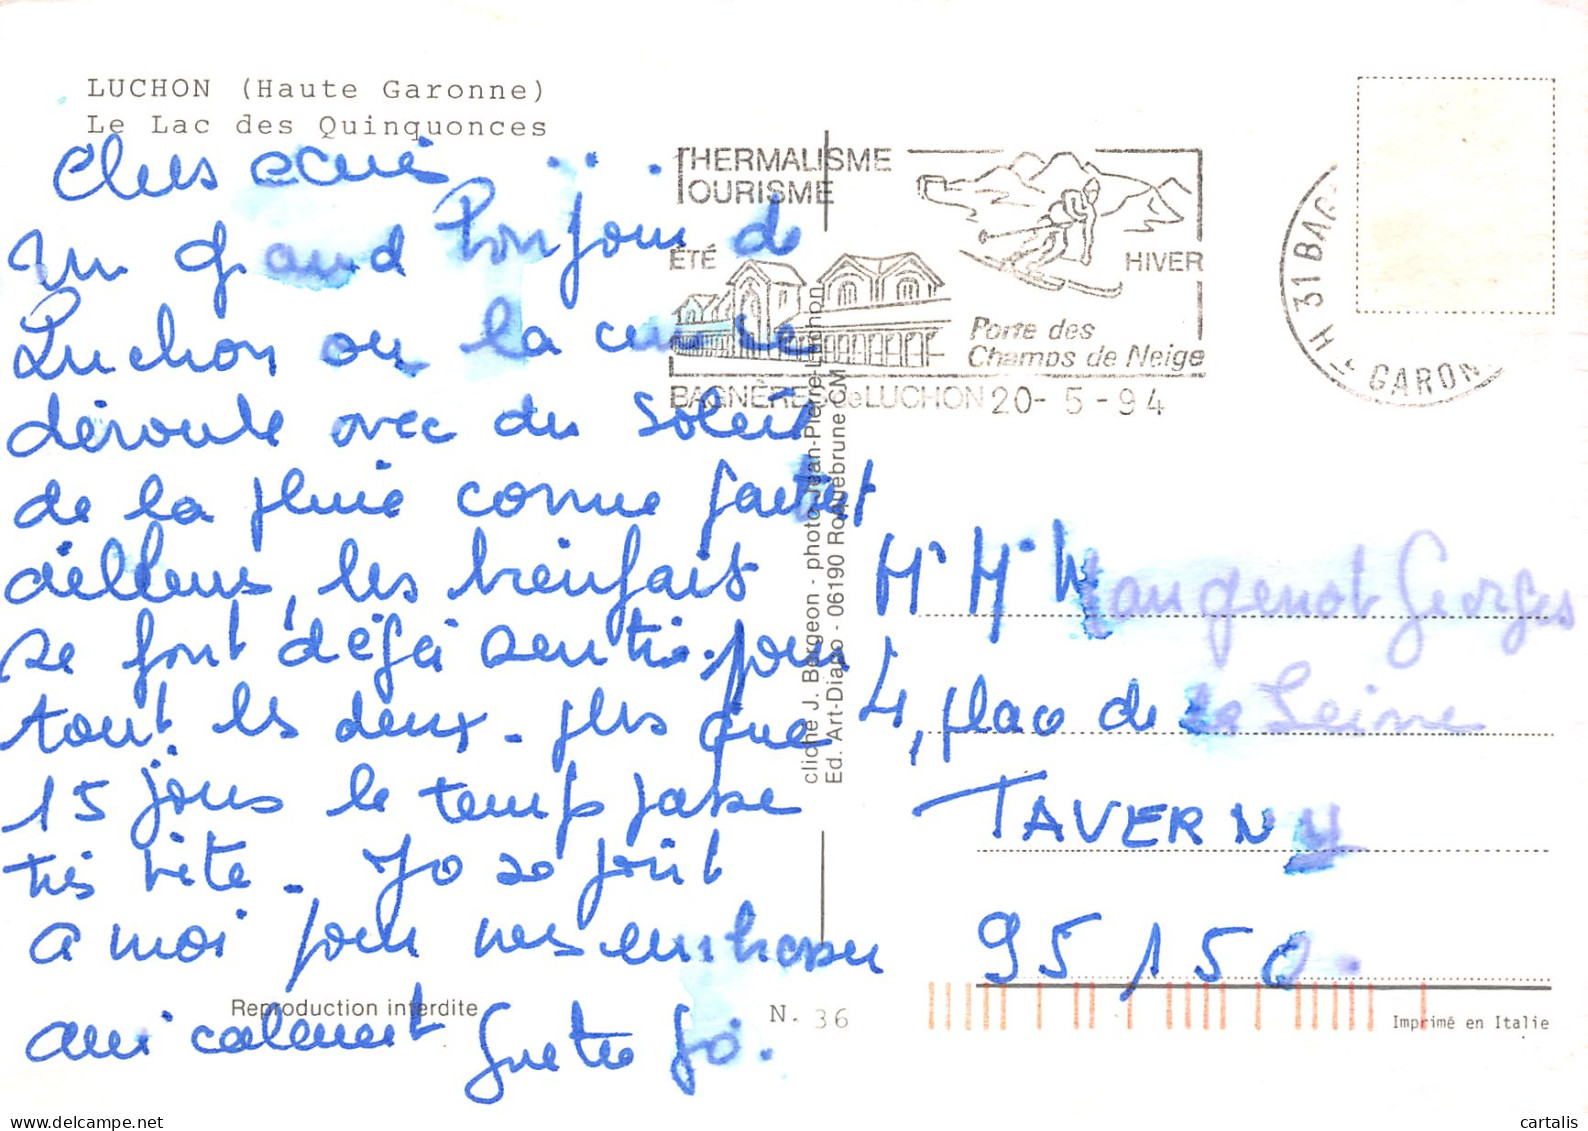 LUCHON (Haute Garonne)
Le Lac des Quinquonces
Chers amis
un grand bonjour de
Luchon ou la cure se
déroule avec du soleil
de la pluie comme partout
ailleurs, les bienfaits
se font déjà sentir pour
tout les deux - plus que
15 jours le temps passe
très vite - Jo se joint
a moi pour vous embrasser
amicalement Jo.
THERMALISME
TOURISME
ÉTÉ
HIVER
Porte des
Champs de Neige
BAGNÈRES de LUCHON 20-5-94
31 BAG
H GARON
cliché J. Bergeon - photo Jean-Pierre-Luchon
Ed. Art-Diapo - 06190 Roquebrune CM
Mr Mme Maugenot Georges
4, place de la Seine
TAVERNY
95150
Reproduction interdite
N. 36
Imprimé en Italie
cartalis
delcampe.net